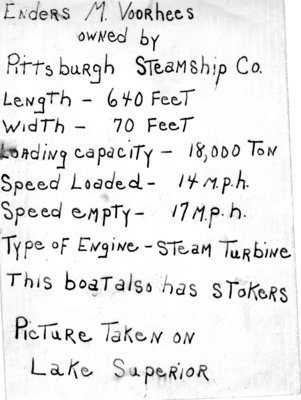 Enders M. Voorhees
owned by
Pittsburgh Steamship Co.
Length - 640 Feet
Width - 70 Feet
Loading capacity - 18,000 Ton
Speed Loaded - 14 M.p.h.
Speed empty - 17 M.p.h.
Type of Engine - Steam Turbine
This boat also has Stokers
Picture Taken on
Lake Superior